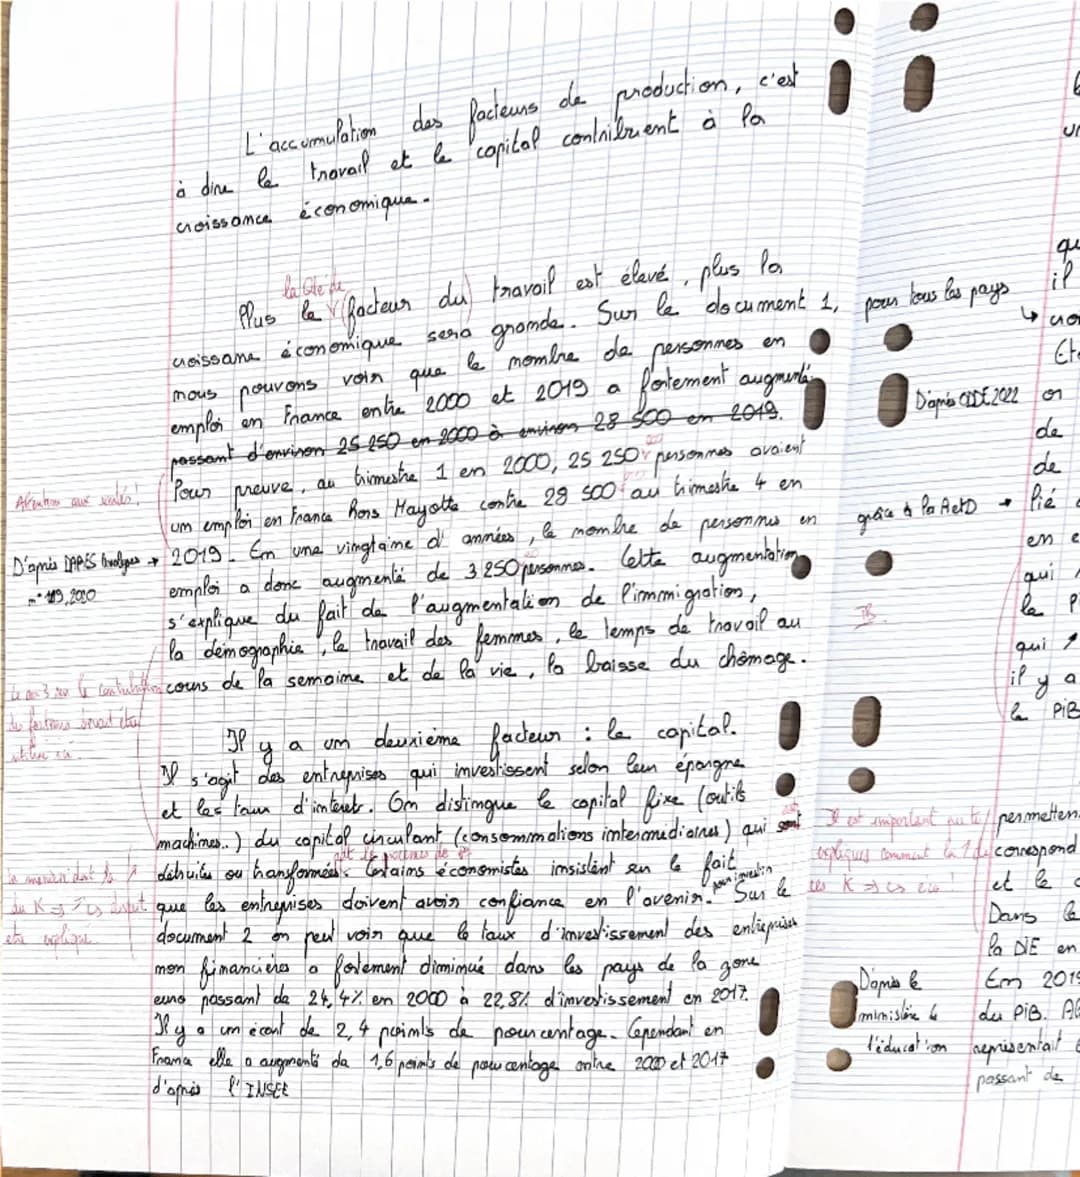 L'accumulation des facteurs de production, c'est
à dire le travail et le capital contribuent à la
croissance économique.
la Qté de
Plus le facteur du travail est élevé, plus la
croissane économique sera grande. Sur le document 1,
nous pouvons voir que le nombre de personnes en
emploi en France entre 2000 et 2019 a fortement augmenté
passant d'environ 25 250 en 2000 à environ 28 500 en 2019.
Pour preuve, au trimestre 1 en 2000, 25 250 personnes avaient
Attention aux unités!
um emploi en France hors Mayotte contre 28 500 au trimestre 4 en
D'après DARES Analyses → 2019. En une vingtaine d'années, le nombre de personnes en
n° 119, 2020
emploi a donc augmenté de 3 250 personnes. Cette augmentation
s'explique du fait de l'augmentation de l'immigration,
la démographie, le travail des femmes, le temps de travail au
cours de la semaine et de la vie, la baisse du chômage.
Le doc 3 sur la contribution
des facteurs devait être
utilisé ici.
Il y a um deuxième facteur : le capital.
Il s'agit des entreprises qui investissent selon leur épargne
et les taux d'intérets. On distingue le capital fixe (outils
machines..) du capital circulant (consommations intermédiaires) qui sont
détruites ou transformées. Certains économistes insistent sur le fait
que les entreprises doivent avoir confiance en l'avenir pour investir. Sur le
document 2 on peut voir que le taux d'investissement des entreprises
non financières a fortement diminué dans les pays de la zone
euro passant de 24,4% en 2000 à 22,8% d'investissement en 2017.
Il y a un écart de 2,4 points de pourcentage. Cependant en
France elle a augmenté de 1,6 points de pourcentage entre 2000 et 2017
d'après l'INSEE
du K
être expliqué.
pour tous les pays
D'après OCDE 2022
grâce à la R et D →
Il est important que tu
expliques comment la
D'après le
ministère de
l'éducation
qu
il
on
de
de
lié
en
qui
la
qui
il y a
le PiB
permettent
correspond
et le
Dans le
la DIE en
En 2019
du PiB.
représentait
passant de